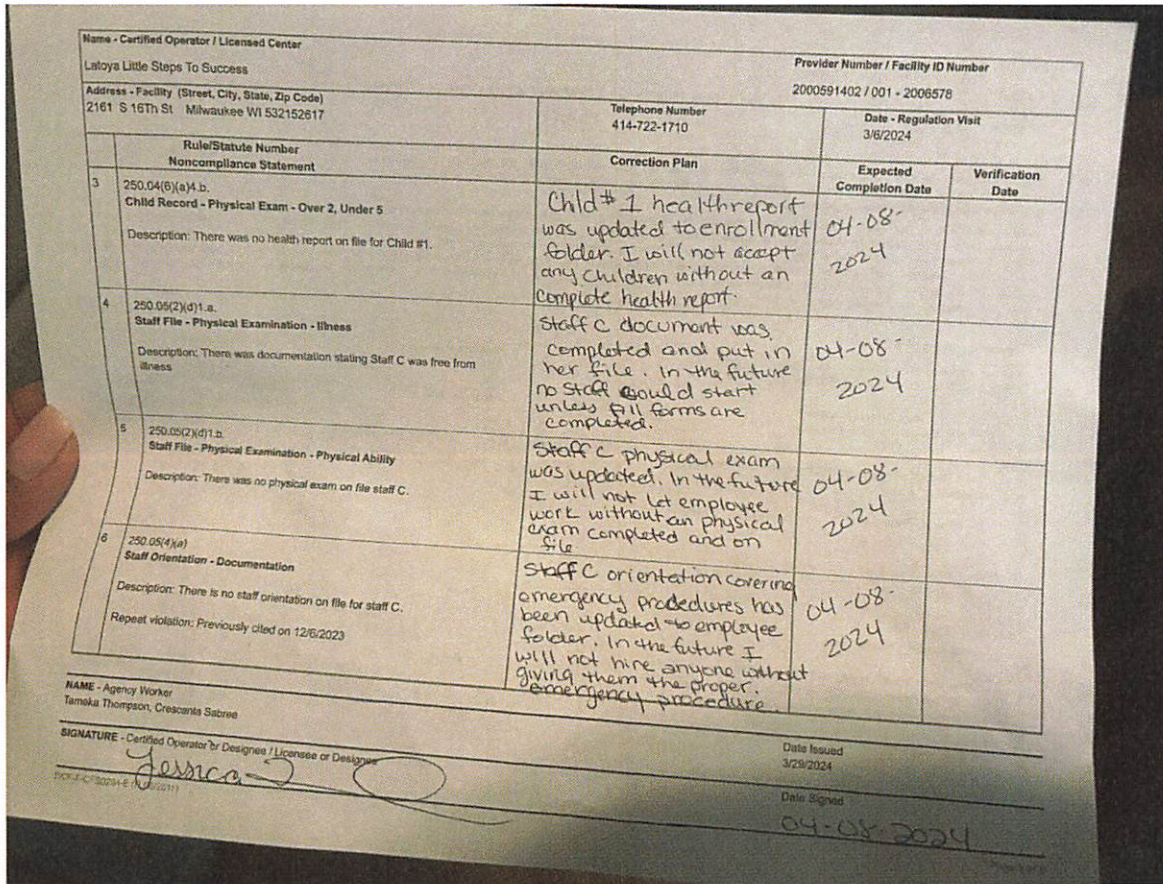 Name - Certified Operator / Licensed Center
Latoya Little Steps To Success
Provider Number / Facility ID Number
2000591402 / 001 - 2006578
Address - Facility (Street, City, State, Zip Code)
2161 S 16Th St Milwaukee WI 532152617
Telephone Number
414-722-1710
Date - Regulation Visit
3/6/2024
Rule/Statute Number
Noncompliance Statement
Correction Plan
Expected
Completion Date
Verification
Date
3 250.04(6)(a)4.b.
Child Record - Physical Exam - Over 2, Under 5
Description: There was no health report on file for Child #1.
Child # 1 health report
was updated to enrollment
folder. I will not accept
any children without an
complete health report.
04-08-
2024
4 250.05(2)(d)1.a.
Staff File - Physical Examination - Illness
Description: There was documentation stating Staff C was free from
illness
Staff C document was
completed and put in
her file. In the future
no staff would start
unless all forms are
completed.
04-08-
2024
5 250.05(2)(d)1.b.
Staff File - Physical Examination - Physical Ability
Description: There was no physical exam on file staff C.
Staff C physical exam
was updated. In the future
I will not let employee
work without an physical
exam completed and on
file
04-08-
2024
6 250.05(4)(a)
Staff Orientation - Documentation
Description: There is no staff orientation on file for staff C.
Repeat violation: Previously cited on 12/6/2023
Staff C orientation covering
emergency procedures has
been updated to employee
folder. In the future I
will not hire anyone without
giving them the proper.
emergency procedure.
04-08-
2024
NAME - Agency Worker
Tameka Thompson, Crescanta Sabree
SIGNATURE - Certified Operator or Designee / Licensee or Designee
Jessica
Date Issued
3/29/2024
Date Signed
04-08-2024